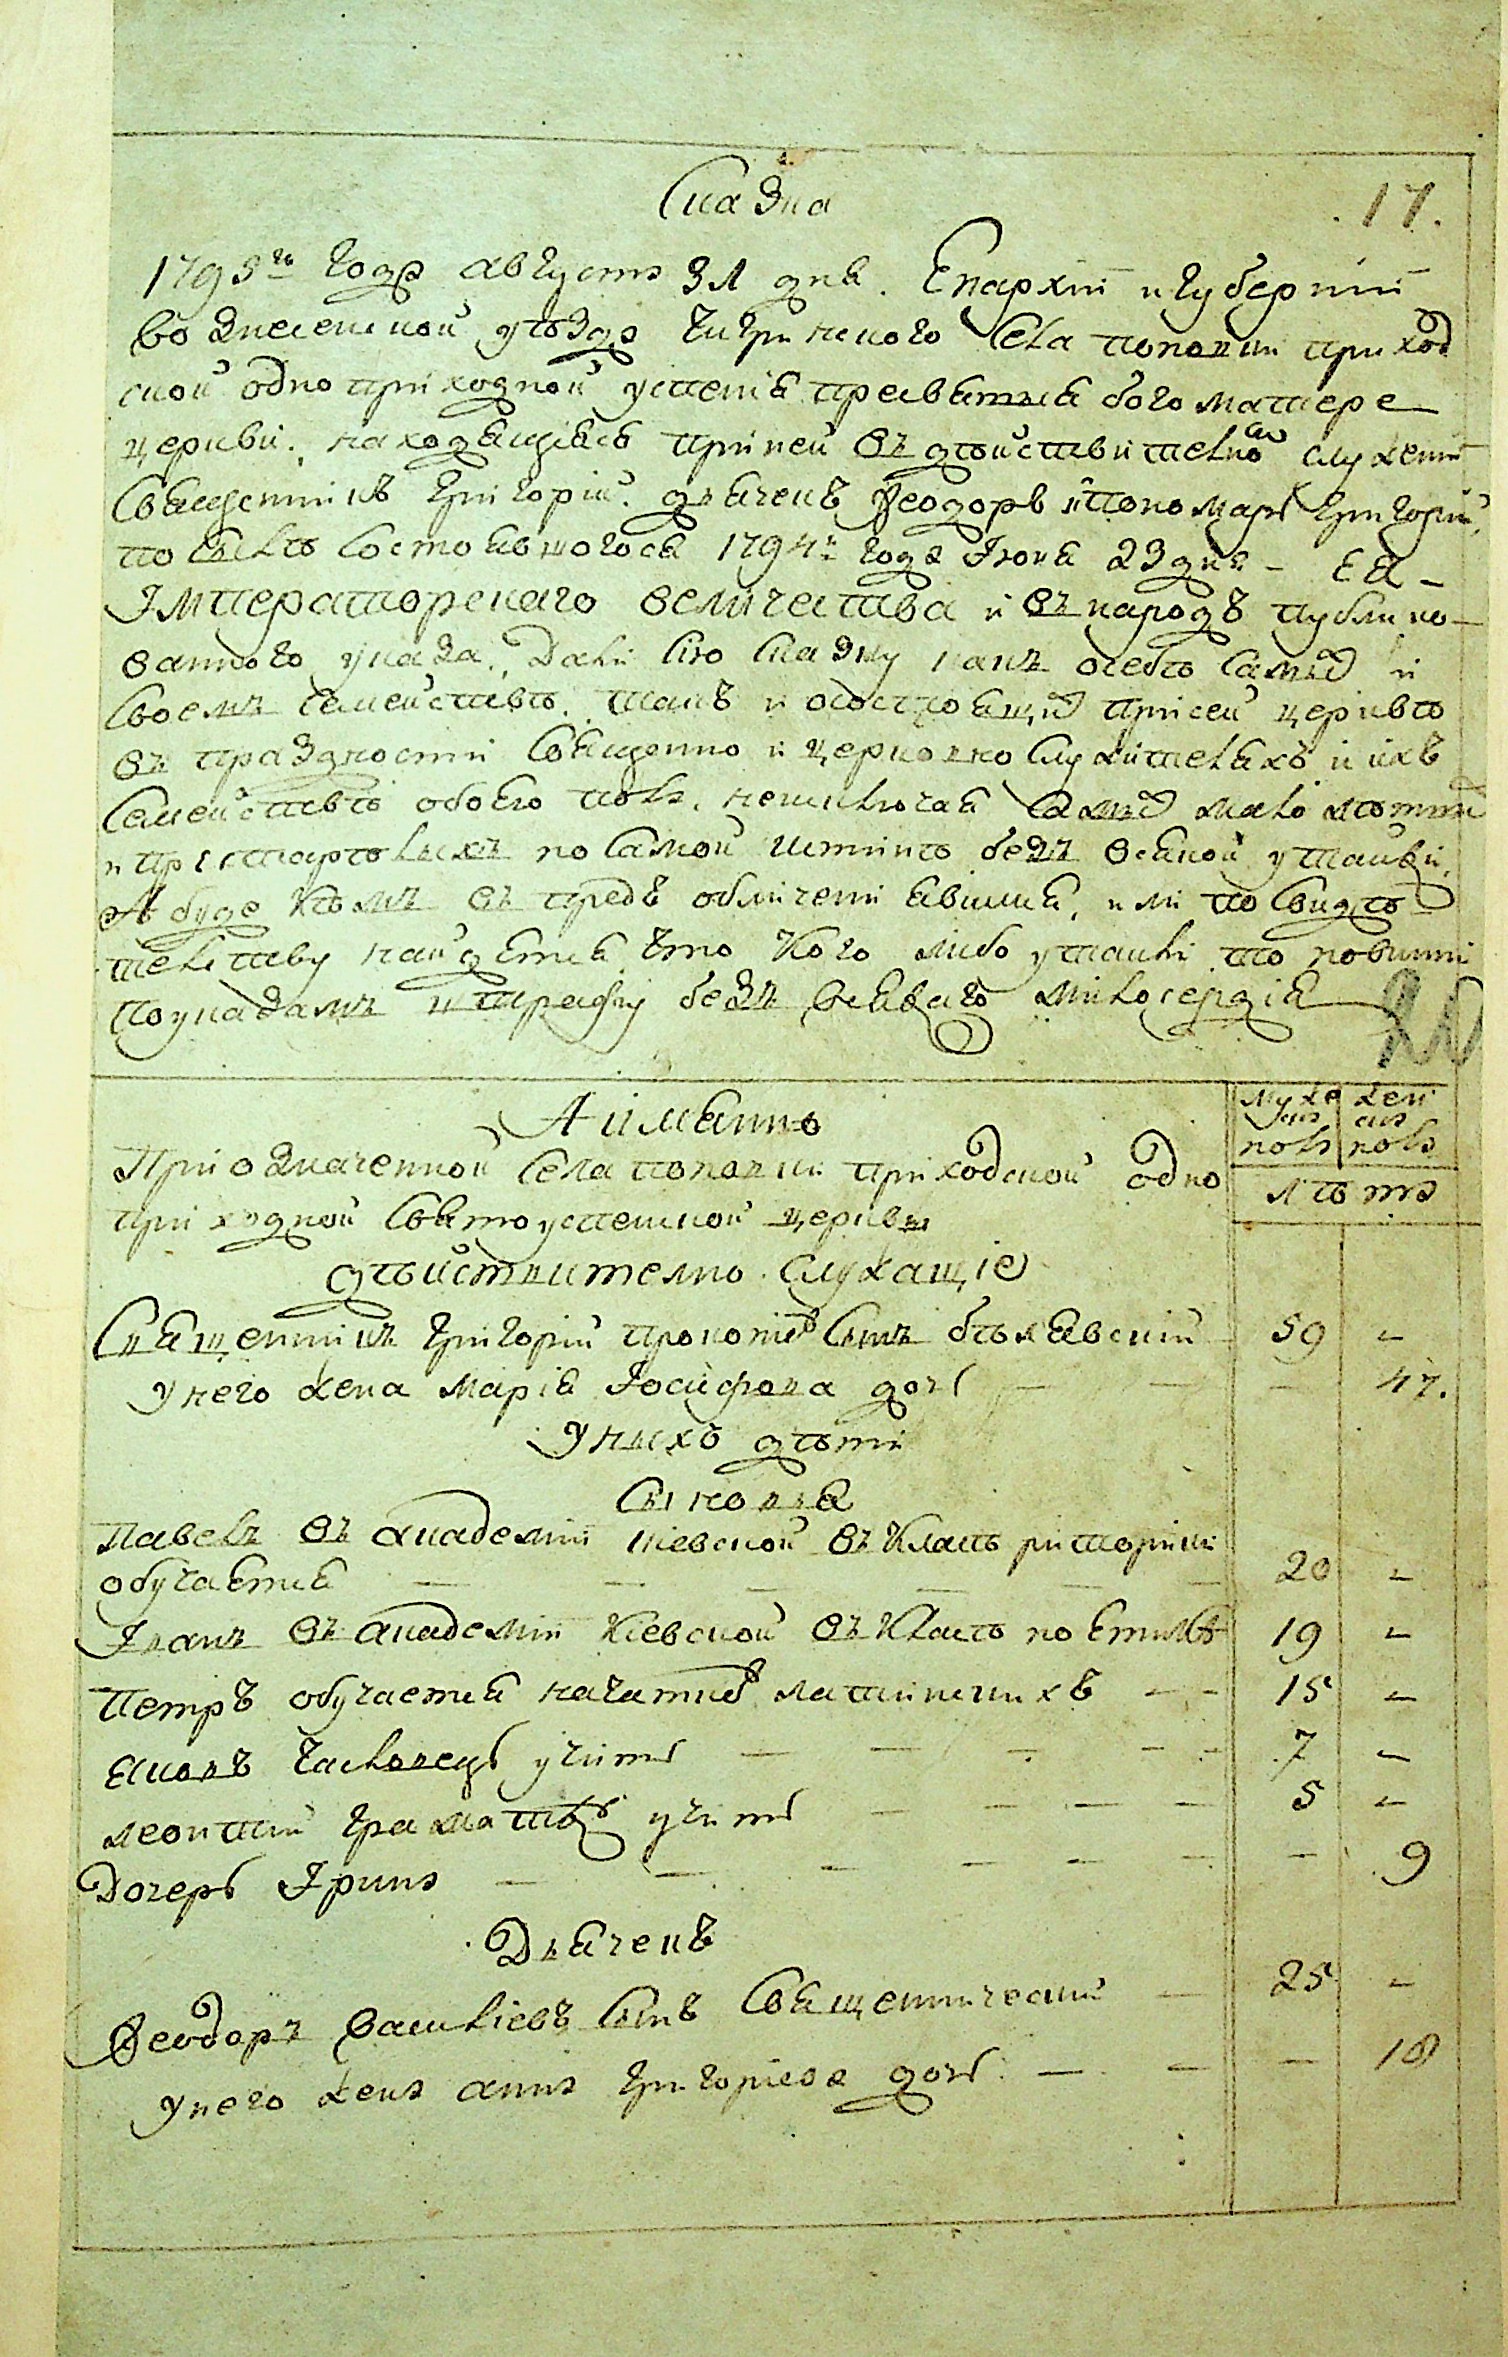 Сказка
17.
1795го года августа 31 дня. Епархіи и губерніи
вознесенской уѣзда Чигринского села попонки приход
ской одноприходной успенія пресвятыя богоматере
церкви. находящіясь при ней въ дѣйствителномъ служеніи
Священникъ Григорій. дьячекъ Феодоръ и пономарь Григорій,
по силѣ состоявшогося 1794го года Іюня 23 дня - ЕЯ -
Імператорскаго величества и въ народъ публико-
ванного указа. Дали сію сказку какъ о себѣ самыхъ и
своемъ семействѣ. такъ и о состоящихъ при сей церквѣ
въ праздности священно и церковно служителяхъ и ихъ
семействѣ обоего пола. неисключая самыхъ мало лѣтнихъ
и престарѣлыхъ по самой истиннѣ безъ всякой утайки.
А буде кѣмъ въ предъ обличени явимся, или по свидѣ-
телству найдется что кого либо утаили то повинни
по указамъ штрафу безъ всякаго милосердія
Аимянно
муже ска пола
жен ска пола
лѣта
При означенной села попонки приходской одно
приходной свято успенской церкви
дѣйствително служащіе
Священникъ Григорій прокопіевъ сынъ бѣлявскій 59 -
у него жена Марія Іосифова дочь — — — 47.
у ныхъ дѣти
сыновья
павелъ въ академіи кіевской въ класѣ риторики
обучается — — — — — — 20 -
Іванъ въ академіи кіевской въ класѣ поетики 19 -
петръ обучается началныхъ латинскихъ — — 15 -
яковъ часловецъ учитъ — — — — — 7 -
леонтій граматку учитъ — — — — 5 -
Дочерь Ірина — — — — — — — 9
Дьячекъ
Феодоръ васильевъ сынъ священническій — 25 -
у него жена анна григоріева дочь. — — — 18